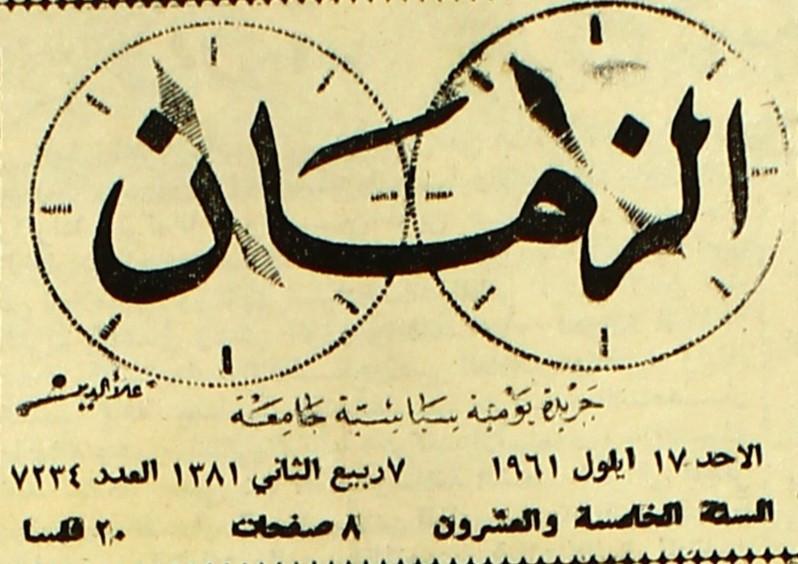 الزمان
علاءالدين
جريدة يومية سياسية جامعة
الاحد ١٧ ايلول ١٩٦١ ٧ ربيع الثاني ١٣٨١ العدد ٧٢٣٤
السنة الخامسة والعشرون ٨ صفحات ٢٠ فلسا